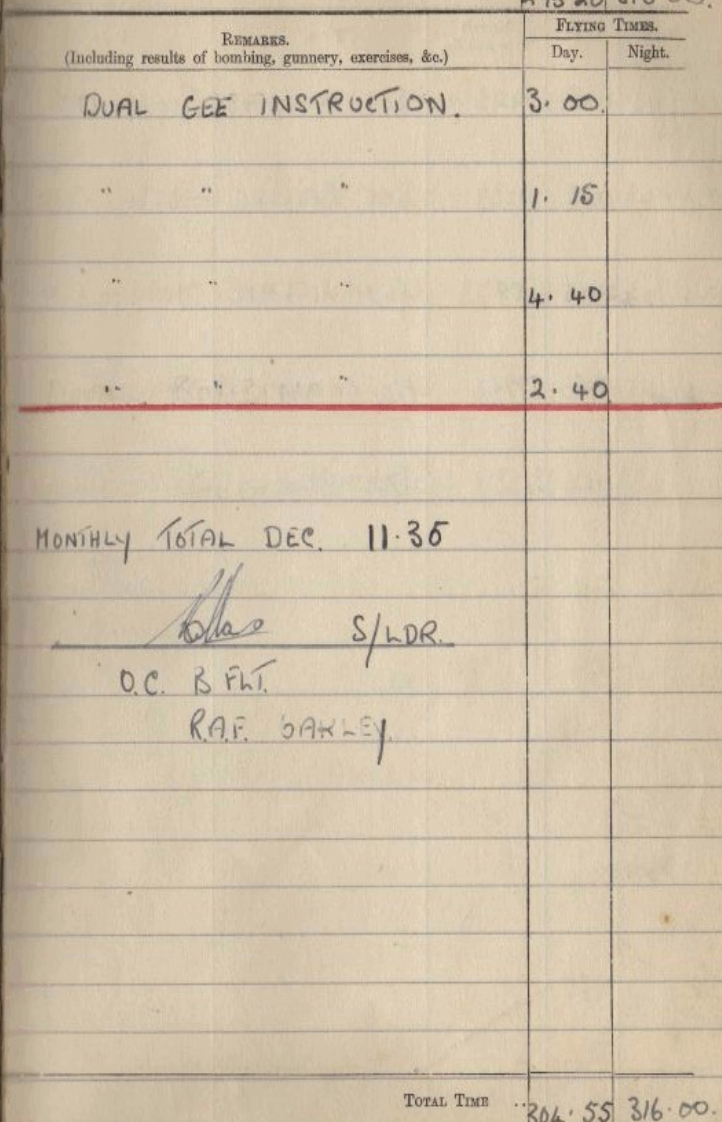 FLYING TIMES.
REMARKS.
(Including results of bombing, gunnery, exercises, &c.)
Day. Night.
DUAL GEE INSTRUCTION. 3.00.
" " " 1.15
" " " 4.40
" " " 2.40
MONTHLY TOTAL DEC. 11.35
S/LDR.
O.C. B FLT.
R.A.F. OAKLEY.
TOTAL TIME .. 304.55 316.00.